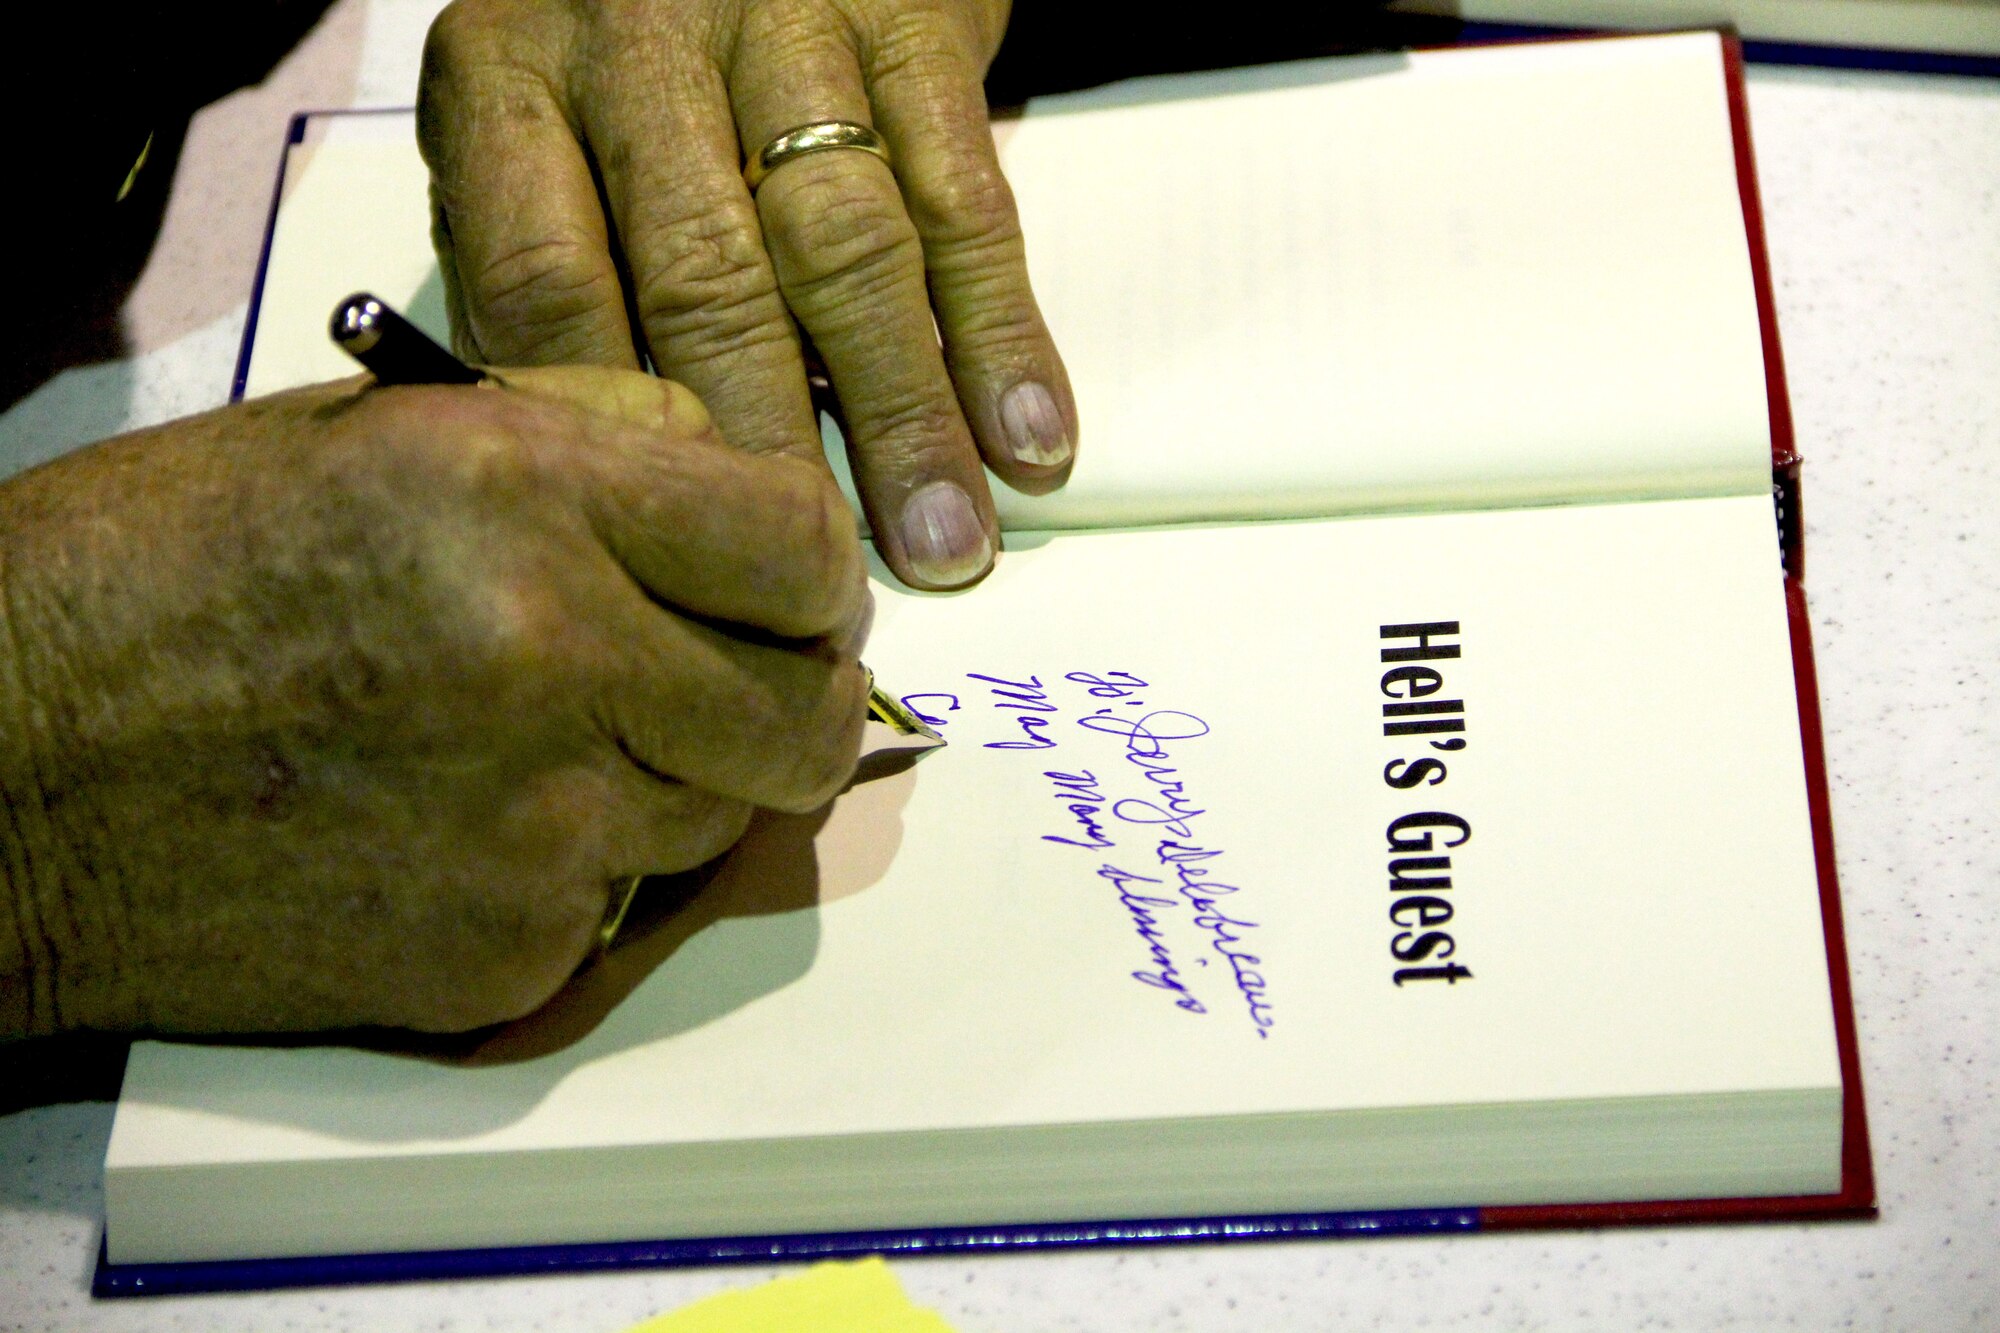 Hell's Guest
To: Jerry Delobreau.
May Many blessings
Co